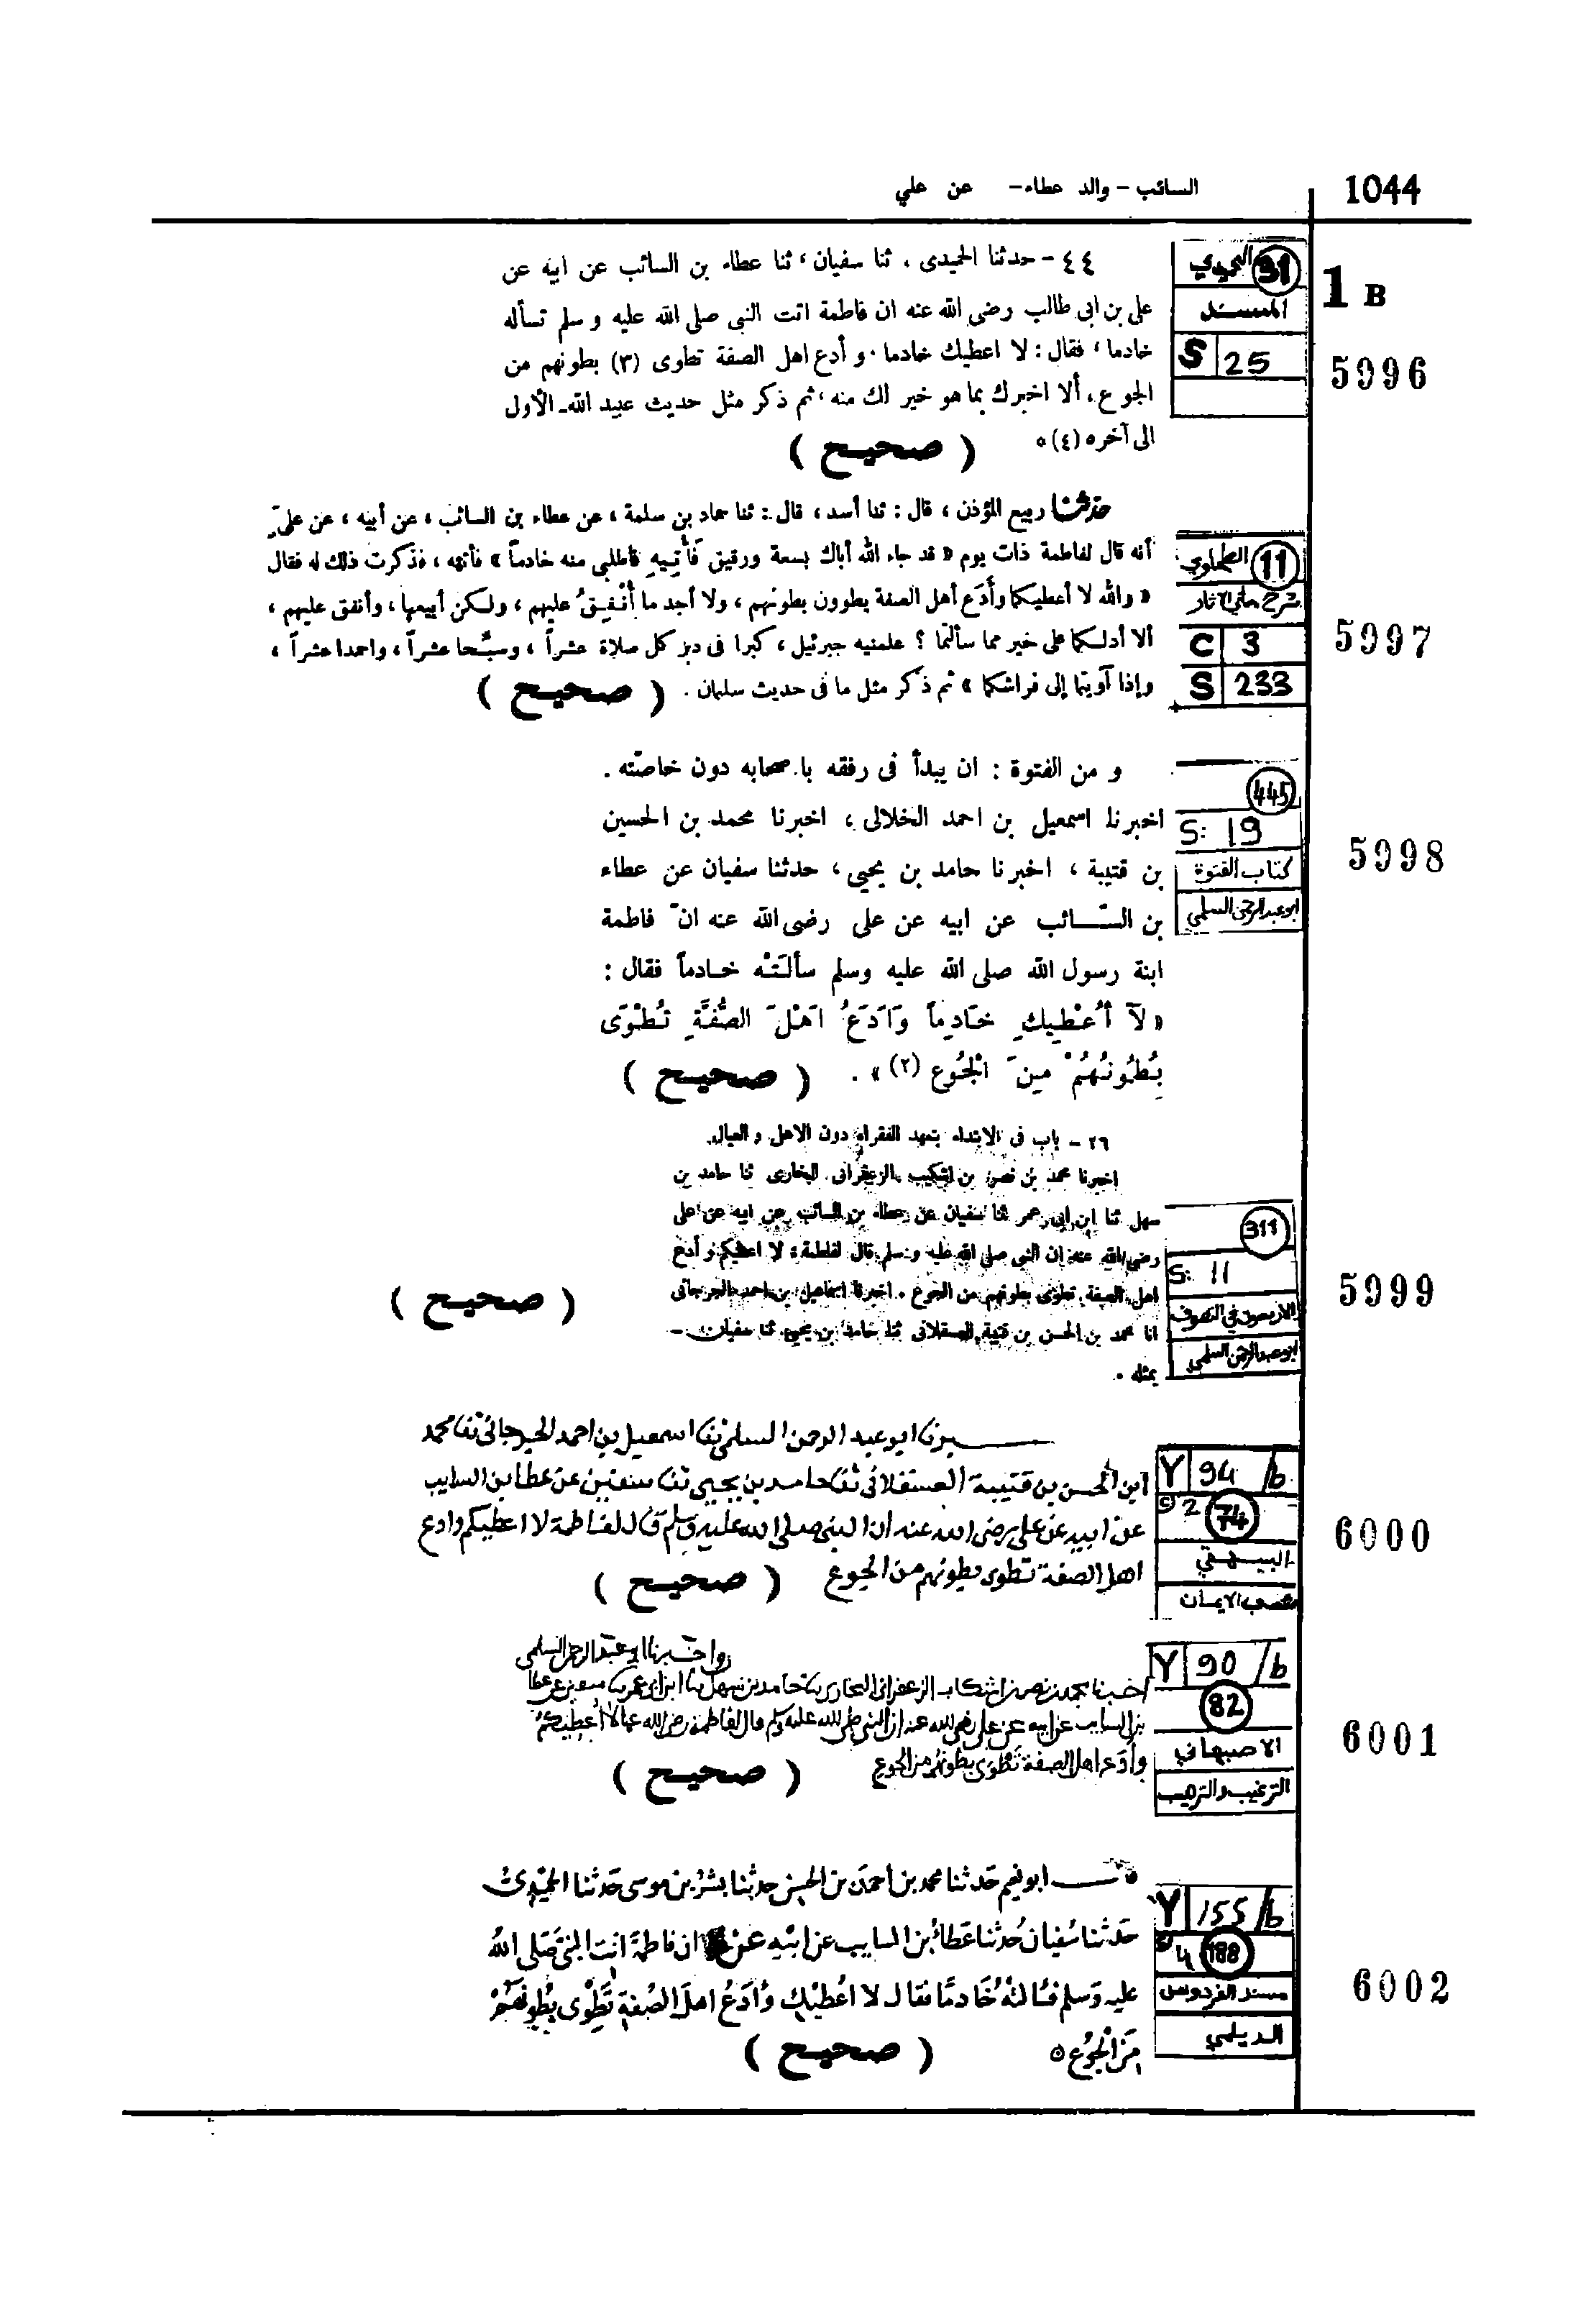 1044
السائب - والد عطاء - عن علي
1 B
31 الحميدي
المسند
S 25
5996
٤٤ - حدثنا الحميدى ، ثنا سفيان ، ثنا عطاء بن السائب عن ابيه عن
على بن ابى طالب رضى الله عنه ان فاطمة اتت النبى صلى الله عليه و سلم تسأله
خادما ، فقال : لا اعطيك خادما . و أدع اهل الصفة تطوى (٣) بطونهم من
الجوع ، ألا اخبرك بما هو خير لك منه ، ثم ذكر مثل حديث عبيد الله - الأول
الى آخره (٤) ه
( صحيح )
11 الطحاوي
شرح معاني الآثار
C 3
S 233
5997
حدثنا ربيع المؤذن ، قال : ثنا أسد ، قال : ثنا حماد بن سلمة ، عن عطاء بن السائب ، عن أبيه ، عن علىّ
أنه قال لفاطمة ذات يوم « قد جاء الله أباك بسعة ورقيق فَأْتِيهِ فاطلبى منه خادماً » فأتته ، فذكرت ذلك له فقال
« والله لا أعطيكما وأَدَع أهل الصفة يطوون بطونهم ، ولا أجد ما أُنْفِقُ عليهم ، ولكن أبيعها ، وأنفق عليهم ،
ألا أدلكما على خير مما سألتما ؟ علمنيه جبرئيل ، كبرا فى دبر كل صلاة عشراً ، وسبِّحا عشراً ، واحمدا عشراً ،
وإذا آويتما إلى فراشكما » ثم ذكر مثل ما فى حديث سلمان .
( صحيح )
445
S: 19
كتاب الفتوة
ابو عبد الرحمن السلمي
5998
و من الفتوة : ان يبدأ فى رفقه باصحابه دون خاصّته .
اخبرنا اسمعيل بن احمد الخلالى ، اخبرنا محمد بن الحسين
بن قتيبة ، اخبرنا حامد بن يحيى ، حدثنا سفيان عن عطاء
بن السّائب عن ابيه عن على رضى الله عنه انّ فاطمة
ابنة رسول الله صلى الله عليه وسلم سألَتْه خادماً فقال :
« لآ أُعْطِيكِ خَادِماً وَاَدَعُ اَهْلَ الصُّفَّةِ تُطْوَى
بُطُونُهُمْ مِنَ الْجُوعِ (٢) » .
( صحيح )
311
S: 11
الاربعون في التصوف
ابو عبد الرحمن السلمي
5999
٢٦ - باب فى الابتداء بتعهد الفقراء دون الاهل و العيال
اخبرنا محمد بن نصر بن اشكيب الزعفرانى البخارى ثنا حامد بن
سهل ثنا ابن ابى عمر ثنا سفيان عن عطاء بن السائب عن ابيه عن على
رضى الله عنه ان النبى صلى الله عليه و سلم قال لفاطمة : لا اعطيكم و أدع
اهل الصفة تطوى بطونهم من الجوع . اخبرنا اسماعيل بن احمد الجرجانى
انا محمد بن الحسن بن قتيبة العسقلانى ثنا حامد بن يحيى ثنا سفيان -
بمثله .
( صحيح )
Y 94 /b
2 74
البيهقي
شعب الايمان
6000
ابو عبد الرحمن السلمى ثنا اسمعيل بن احمد الجرجانى ثنا محمد
ابن الحسن بن قتيبة العسقلانى ثنا حامد بن يحيى ثنا سفين عن عطا بن السايب
عن ابيه عن على رضى الله عنه ان النبى صلى الله عليه وسلم قال لفاطمة لا اعطيكم وادع
اهل الصفة تطوى بطونهم من الجوع
( صحيح )
Y 90 /b
82
الاصبهاني
الترغيب والترهيب
6001
واخبرنا ابو عبد الرحمن السلمى
اخبرنا محمد بن نصر بن اشكاب الزعفرانى البخارى ثنا حامد بن سهل ثنا ابن ابى عمر ثنا سفين عن عطا
بن السايب عن ابيه عن على رضى الله عنه ان النبى صلى الله عليه وسلم قال لفاطمة رضى الله عنها لا اُعطيكم
وأدَع اهل الصفة تَطْوى بطونهم من الجوع
( صحيح )
Y 155 /b
4 188
مسند الفردوس
الديلمي
6002
ابو نعيم حَدثنا محمد بن أحمد بن الحسن حدثنا بشر بن موسى حَدثنا الحُمَيْدىّ
حَدثنا سُفيان حُدثنا عَطاءُ بن السايب عن ابيْهِ عَنْ ان فاطمة اتت النبى صَلى اللهُ
عليه وَسلم فسَالتهُ خَادمًا فقال لا اعُطيْكِ وأدَعُ اهلَ الصُفةِ تَطْوِى بُطُونَهُمْ
مِنَ الجُوْعِ ه
( صحيح )